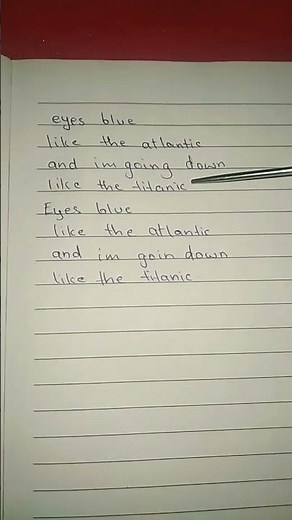 eyes blue
like the atlantic
and im going down
like the titanic
Eyes blue
like the atlantic
and im goin down
like the titanic